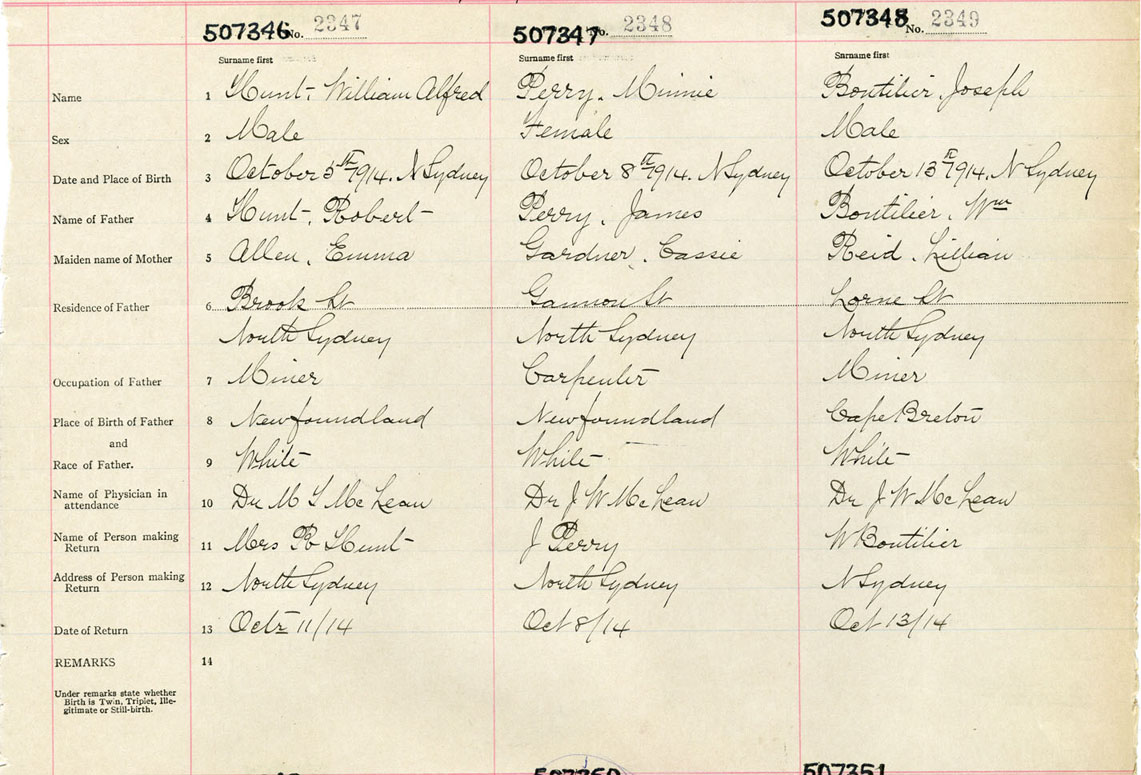 507346 No. 2347 507347 No. 2348 507348 No. 2349
Surname first Surname first Surname first
Name 1 Hunt, William Alfred Perry, Minnie Boutilier, Joseph
Sex 2 Male Female Male
Date and Place of Birth 3 October 5th 1914. N Sydney October 8th 1914. N Sydney October 13th 1914. N Sydney
Name of Father 4 Hunt, Robert Perry, James Boutilier, Wm
Maiden name of Mother 5 Allen, Emma Gardner, Cassie Reid, Lillian
Residence of Father 6 Brook St Gannon St Lorne St
North Sydney North Sydney North Sydney
Occupation of Father 7 Miner Carpenter Miner
Place of Birth of Father 8 Newfoundland Newfoundland Cape Breton
and
Race of Father. 9 White White White
Name of Physician in
attendance 10 Dr M G McLean Dr J W McLean Dr J W McLean
Name of Person making
Return 11 Mrs R Hunt J Perry W Boutilier
Address of Person making
Return 12 North Sydney North Sydney N Sydney
Date of Return 13 Octr 11/14 Oct 8/14 Oct 13/14
REMARKS 14
Under remarks state whether
Birth is Twin, Triplet, Ille-
gitimate or Still-birth.
507351